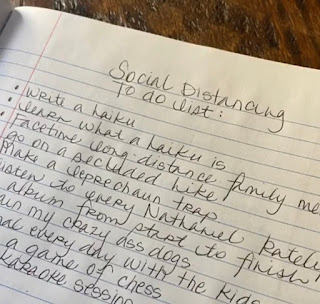 Social Distancing
To do list:
• Write a haiku
• Learn what a haiku is
• Facetime long-distance family me
go on a secluded hike
make a leprechaun trap
isten to every Nathaniel Ratel
album from start to finish
my crazy ass dogs
every day with the kids
a game of chess
karaoke session